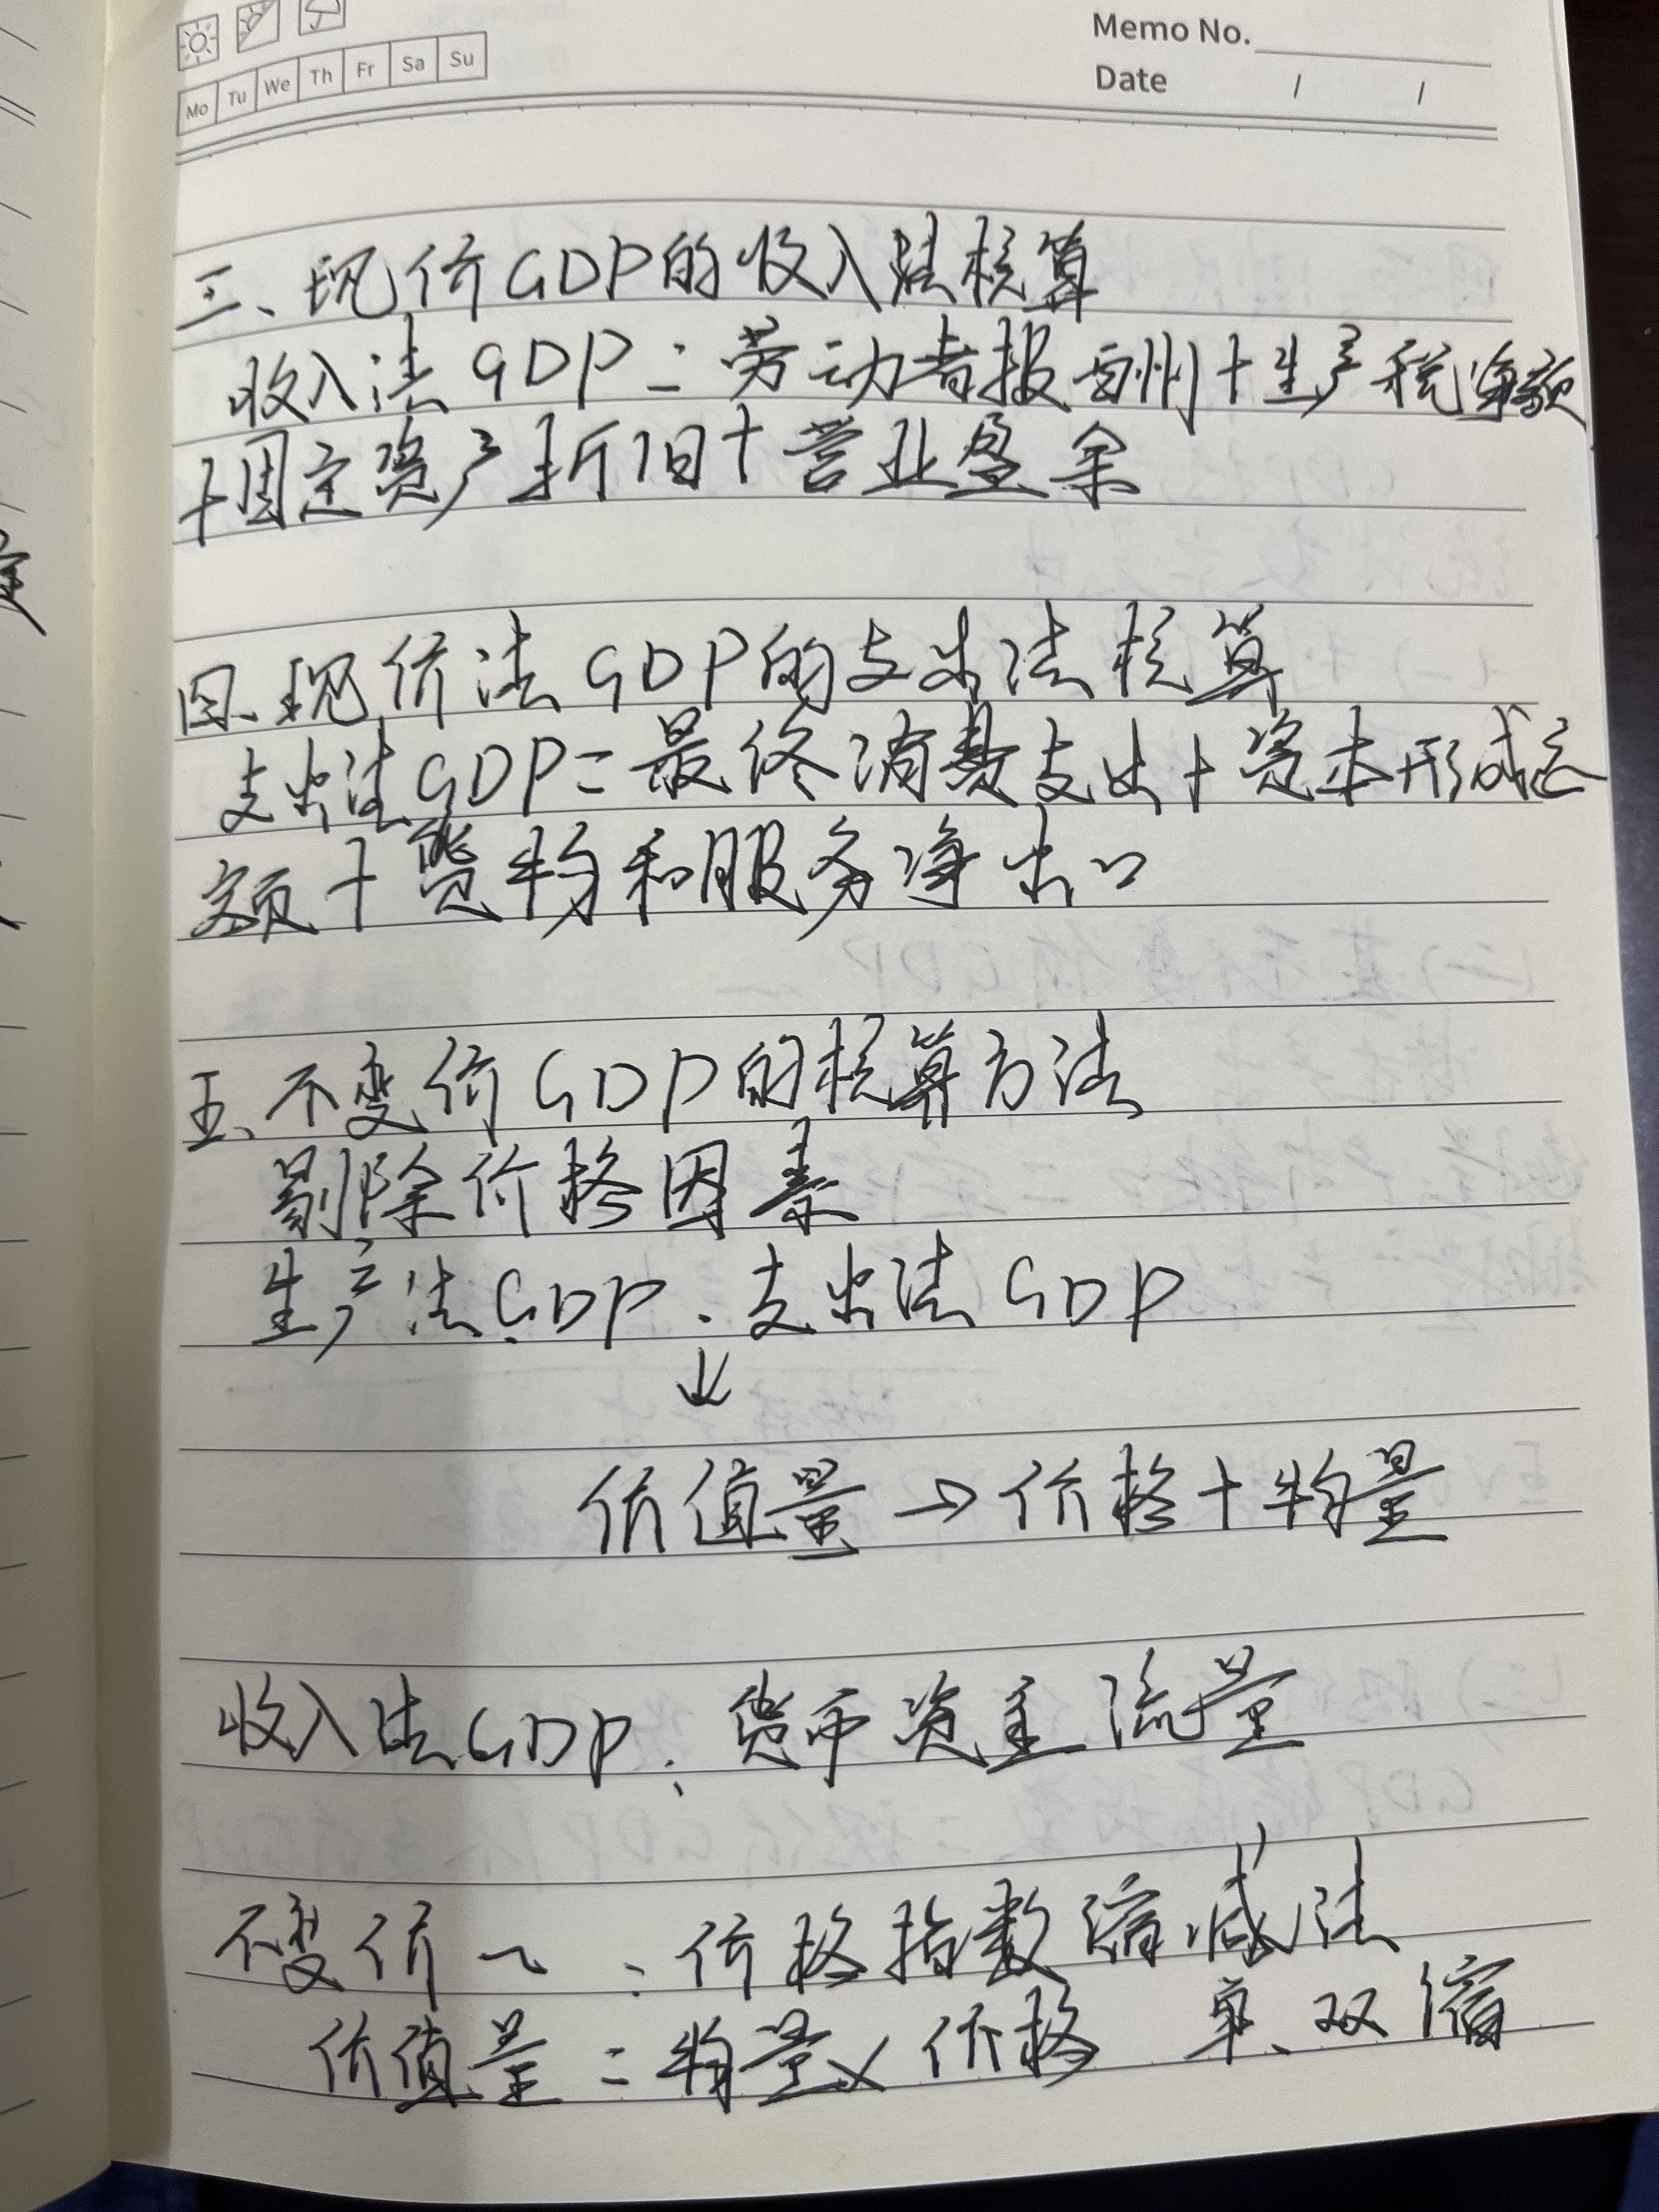 Memo No.
Date / /
Mo Tu We Th Fr Sa Su
三、现价GDP的收入法核算
收入法GDP=劳动者报酬+生产税净额
+固定资产折旧+营业盈余
四、现价法GDP的支出法核算
支出法GDP=最终消费支出+资本形成总
额+货物和服务净出口
五、不变价GDP的核算方法
剔除价格因素
生产法GDP、支出法GDP
↓
价值量→价格+物量
收入法GDP:货币资 流量
不变价~:价格指数缩减法
价值量=物量×价格 单、双缩